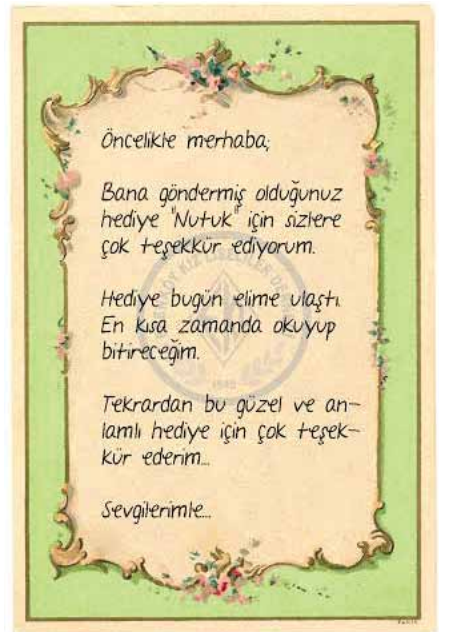 Öncelikle merhaba;
Bana göndermiş olduğunuz
hediye "Nutuk" için sizlere
çok teşekkür ediyorum.
Hediye bugün elime ulaştı.
En kısa zamanda okuyup
bitireceğim.
Tekrardan bu güzel ve an-
lamlı hediye için çok teşek-
kür ederim...
Sevgilerimle...